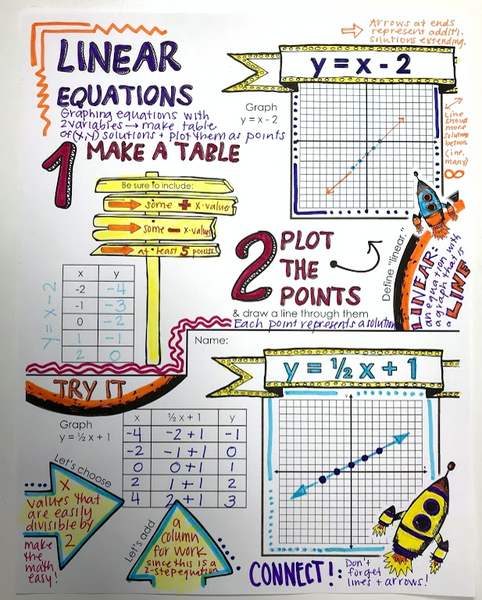 Arrows at ends
represent additi.
solutions extending.
LINEAR
EQUATIONS
Graphing equations with
2 variables → make table
of (x,y) solutions + plot them as points
y = x - 2
Graph
y = x - 2
Line
shows
more
solutions
between
(inf.
many)
∞
1 MAKE A TABLE
Be sure to include:
some + x-values
some - x-values
at least 5 points
x y
-2 -4
-1 -3
0 -2
1 -1
2 0
y = x - 2
2 PLOT
THE
POINTS
& draw a line through them
Each point represents a solution
Define "linear."
LINEAR:
an equation with
a graph that's
a LINE
Name:
TRY IT
y = ½x + 1
Graph
y = ½ x + 1
x ½ x + 1 y
-4 -2 + 1 -1
-2 -1 + 1 0
0 0 + 1 1
2 1 + 1 2
4 2 + 1 3
Let's choose
x
values that
are easily
divisible by
2
make
the
math
easy!
Let's add
a
column
for work
since this is a
2-step equation
CONNECT!:
Don't
forget
lines + arrows!